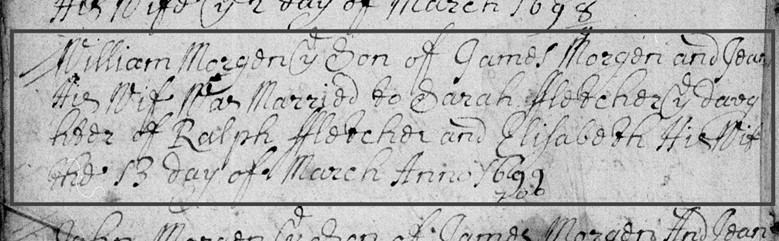 His Wife (ye 2 day of March 1698
William Morgen (ye Son of James Morgen and Jean
His Wif Was Married to Sarah ffletcher (ye daug
hter of Ralph ffletcher and Elisabeth His Wif
the 13 day of March Anno 1699
700
John Morgen (ye Son of James Morgen And Jean